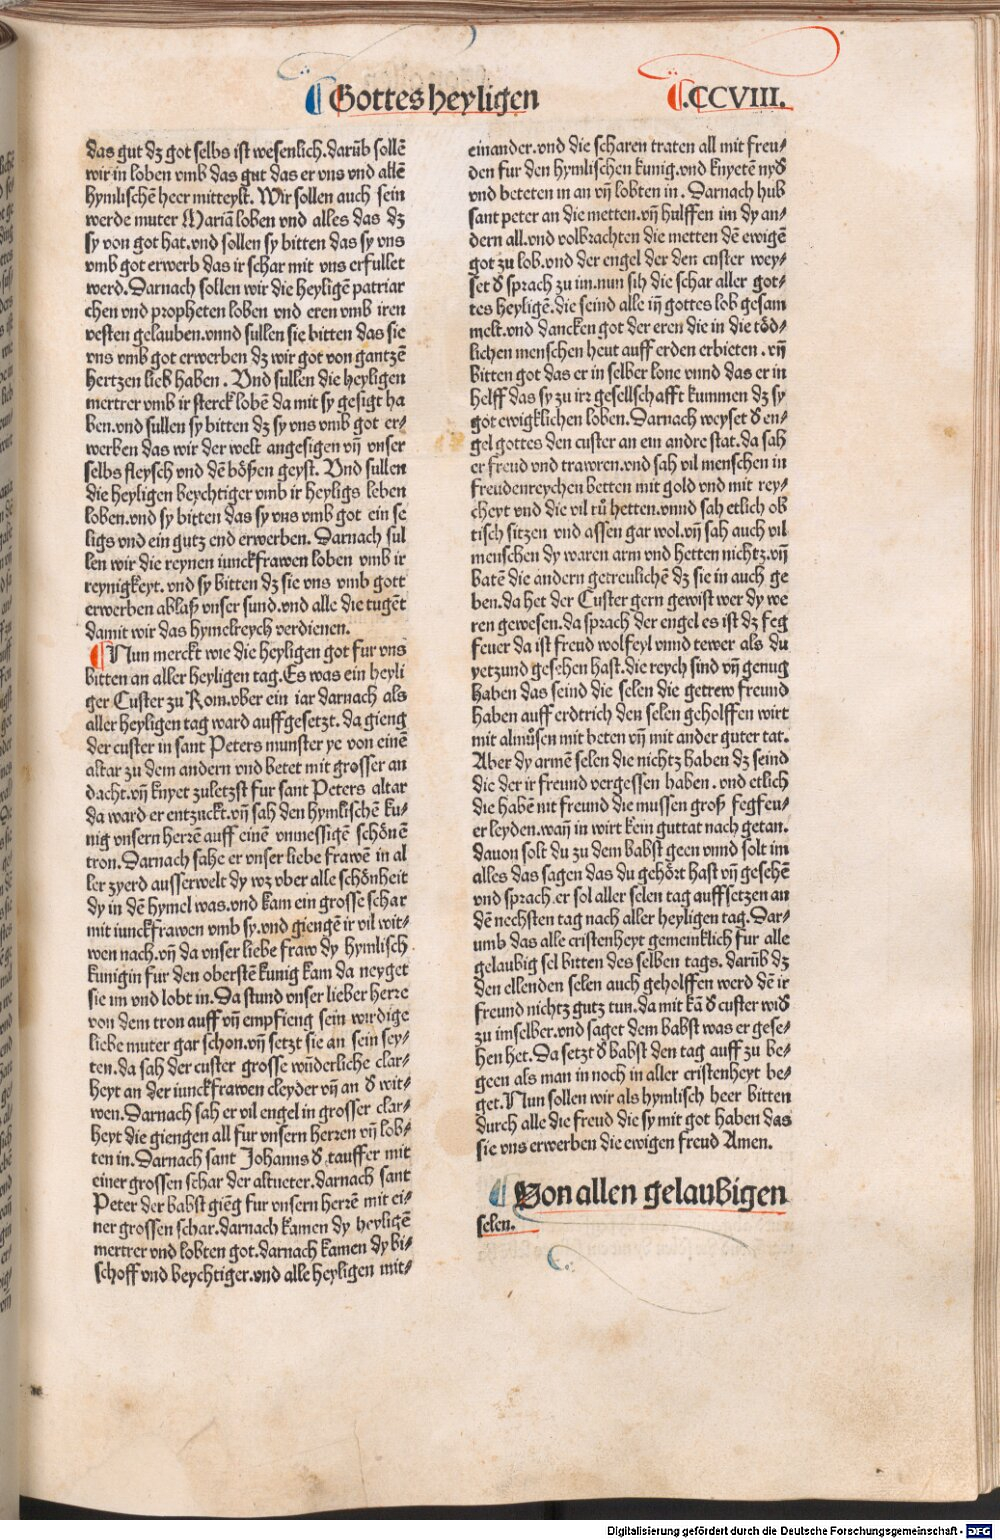 Gottes heyligen
.CCVIII.
das gut dz got selbs ist wesenlich.darūb sollē
wir in loben vmb das gut das er vns vnd allē
hymlischē heer mitteylt. Wir sollen auch sein
werde muter Mariā loben vnd alles das dz
sy von got hat.vnd sollen sy bitten das sy vns
vmb got erwerb das ir schar mit vns erfullet
werd.Darnach sollen wir die heyligē patriar
chen vnd propheten loben vnd eren vmb iren
vesten gelauben.vnnd sullen sie bitten das sie
vns vmb got erwerben dz wir got von gantzē
hertzen lieb haben . Vnd sullen die heyligen
mertrer vmb ir sterck lobē da mit sy gesigt ha
ben.vnd sullen sy bitten dz sy vns vmb got er⸗
werben das wir der welt angesigen vñ vnser
selbs fleysch vnd dē bößen geyst. Vnd sullen
die heyligen beychtiger vmb ir heyligs leben
loben.vnd sy bitten das sy vns vmb got ein se
ligs vnd ein gutz end erwerben. Darnach sul
len wir die reynen iunckfrawen loben vmb ir
reynigkeyt. vnd sy bitten dz sie vns vmb gott
erwerben ablaß vnser sund.vnd alle die tugēt
damit wir das hymelreych verdienen.
Nun merckt wie die heyligen got fur vns
bitten an aller heyligen tag.Es was ein heyli
ger Custer zu Rom.vber ein iar darnach als
aller heyligen tag ward auffgesetzt. da gieng
der custer in sant Peters munster ye von einē
altar zu dem andern vnd betet mit grosser an
dacht.vñ knyet zuletzst fur sant Peters altar
da ward er entzuckt.vñ sah den hymlischē ku⸗
nig vnsern herrē auff einē vnmessigē schönē
tron.Darnach sahe er vnser liebe frawē in al
ler zyerd ausserwelt dy wz vber alle schönheit
dy in dē hymel was.vnd kam ein grosse schar
mit iunckfrawen vmb sy.vnd giengē ir vil wit⸗
wen nach.vñ da vnser liebe fraw dy hymlisch
kunigin fur den oberstē kunig kam da neyget
sie im vnd lobt in.Da stund vnser lieber herre
von dem tron auff vñ empfieng sein wirdige
liebe muter gar schon.vñ setzt sie an sein sey⸗
ten.da sah der custer grosse wūderliche clar⸗
heyt an der iunckfrawen cleyder vñ an d̕ wit⸗
wen.Darnach sah er vil engel in grosser clar⸗
heyt die giengen all fur vnsern herren vñ lob⸗
ten in.Darnach sant Johanns d̕ tauffer mit
einer grossen schar der altueter.darnach sant
Peter der babst giēg fur vnsern herrē mit ei⸗
ner grossen schar.darnach kamen dy heyligē
mertrer vnd lobten got.darnach kamen dy bi⸗
schoff vnd beychtiger.vnd alle heyligen mit⸗
einander.vnd die scharen traten all mit freu⸗
den fur den hymlischen kunig.vnd knyetē nyd̕
vnd beteten in an vñ lobten in . Darnach hub
sant peter an die metten.vñ hulffen im dy an⸗
dern all.vnd volbrachten die metten dē ewigē
got zu lob.vnd der engel der den custer wey⸗
set d̕ sprach zu im.nun sih die schar aller got⸗
tes heyligē.die seind alle iñ gottes lob gesam
melt.vnd dancken got der eren die in die töd⸗
lichen menschen heut auff erden erbieten . vñ
bitten got das er in selber lone vnnd das er in
helff das sy zu irr gesellschafft kummen dz sy
got ewigklichen loben.Darnach weyset d̕ en⸗
gel gottes den custer an ein andre stat.da sah
er freud vnd trawren.vnd sah vil menschen in
freudenreychen betten mit gold vnd mit rey⸗
cheyt vnd die vil rů hetten.vnnd sah etlich ob
tisch sitzen vnd assen gar wol.vñ sah auch vil
menschen dy waren arm vnd hetten nichtz.vñ
batē die andern getreulichē dz sie in auch ge
ben.da het der Custer gern gewist wer dy we
ren gewesen.da sprach der engel es ist dz feg
feuer da ist freud wolfeyl vnnd tewer als du
yetzund gesehen hast.die reych sind vñ genug
haben das seind die selen die getrew freund
haben auff erdtrich den selen geholffen wirt
mit almůsen mit beten vñ mit ander guter tat.
Aber dy armē selen die nichtz haben dz seind
die der ir freund vergessen haben . vnd etlich
die habē nit freund die mussen groß fegfeu⸗
er leyden.wañ in wirt kein guttat nach getan.
dauon solt du zu dem babst geen vnnd solt im
alles das sagen das du gehört hast vñ gesehē
vnd sprach.er sol aller selen tag auffsetzen an
dē nechsten tag nach aller heyligen tag.Dar⸗
umb das alle cristenheyt gemeinklich fur alle
gelaubig sel bitten des selben tags. darūb dz
den ellenden selen auch geholffen werd dē ir
freund nichtz gutz tun.da mit kā d̕ custer wid̕
zu imselber.vnd saget dem babst was er gese⸗
hen het.Da setzt d̕ babst den tag auff zu be⸗
geen als man in noch in aller cristenheyt be⸗
get.Nun sollen wir als hymlisch heer bitten
durch alle die freud die sy mit got haben das
sie vns erwerben die ewigen freud Amen.
Von allen gelaubigen
selen.
Digitalisierung gefördert durch die Deutsche Forschungsgemeinschaft - DFG